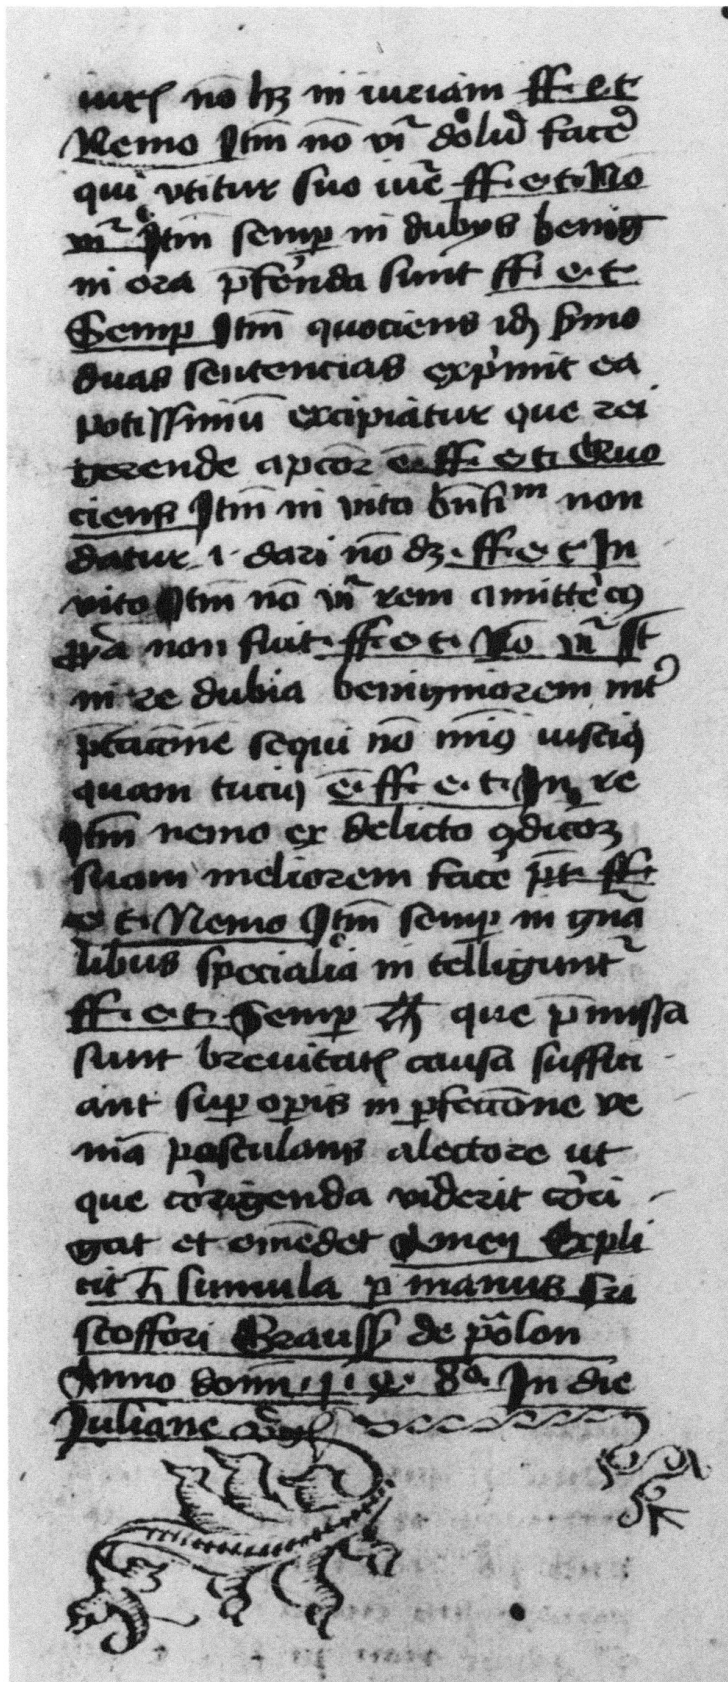 iuris nō hꝫ in iuriam ff. e. t.
Nemo Itm̄ nō vr̄ dolū facẽ
qui vtitur suo iuẽ ff. e. t. Nō
vr̄ Itm̄ semp̱ in dubys benig
ni ora p̄ferēda sunt ff. e. t.
Semp Itm̄ quociens idē s̄mo
duas sentencias exp̄mit ea
potissimū excipiatur que rei
gerende apcōr ē. ff. e. t. Quo
ciens Itm̄ in vito bn̄fi^m non
datur .i. dari nō dꝫ. ff. e. t. In
vito Itm̄ nō vr̄ rem amittẽ cꝰ
p̱p̄a non fuit. ff. e. t. Nō vr̄ It̄
in re dubia benigniorem int̄
p̄tacōnē sequi nō minꝰ iusciꝰ
quam tuciꝰ ē. ff. e. t. In re
Itm̄ nemo ex delicto ꝯdicōꝫ
suam meliorem facẽ p̄t. ff.
e. t. Nemo Itm̄ semp̱ in gn̄a
libus specialia in telligunt̄
ff. e. t. Semp̱ que p̄missa
sunt breuitatis causa suffici
ant sup̱ op̱is in p̱feccōne ve
niā postulans alectore ut
que cōrigenda viderit cōri
gat et emēdet Amen Expli
cit h̄ summula p̱ manus cri
stoffori Grauss de polon
Anno domī. In die
Juliane v̄gis